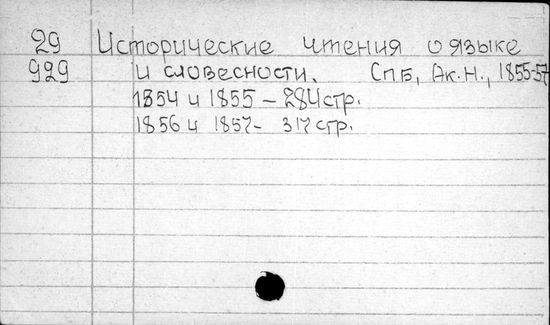 29 Исторические чтения о языке
929 и словесности. СПБ, Ак.Н., 1855-57
1854 и 1855 - 284 стр.
1856 и 1857 - 317 стр.